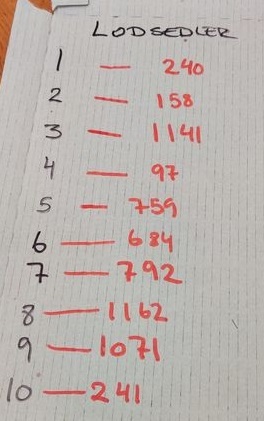 LODSEDLER
1 — 240
2 — 158
3 — 1141
4 — 97
5 — 759
6 — 684
7 — 792
8 — 1162
9 — 1071
10 — 241